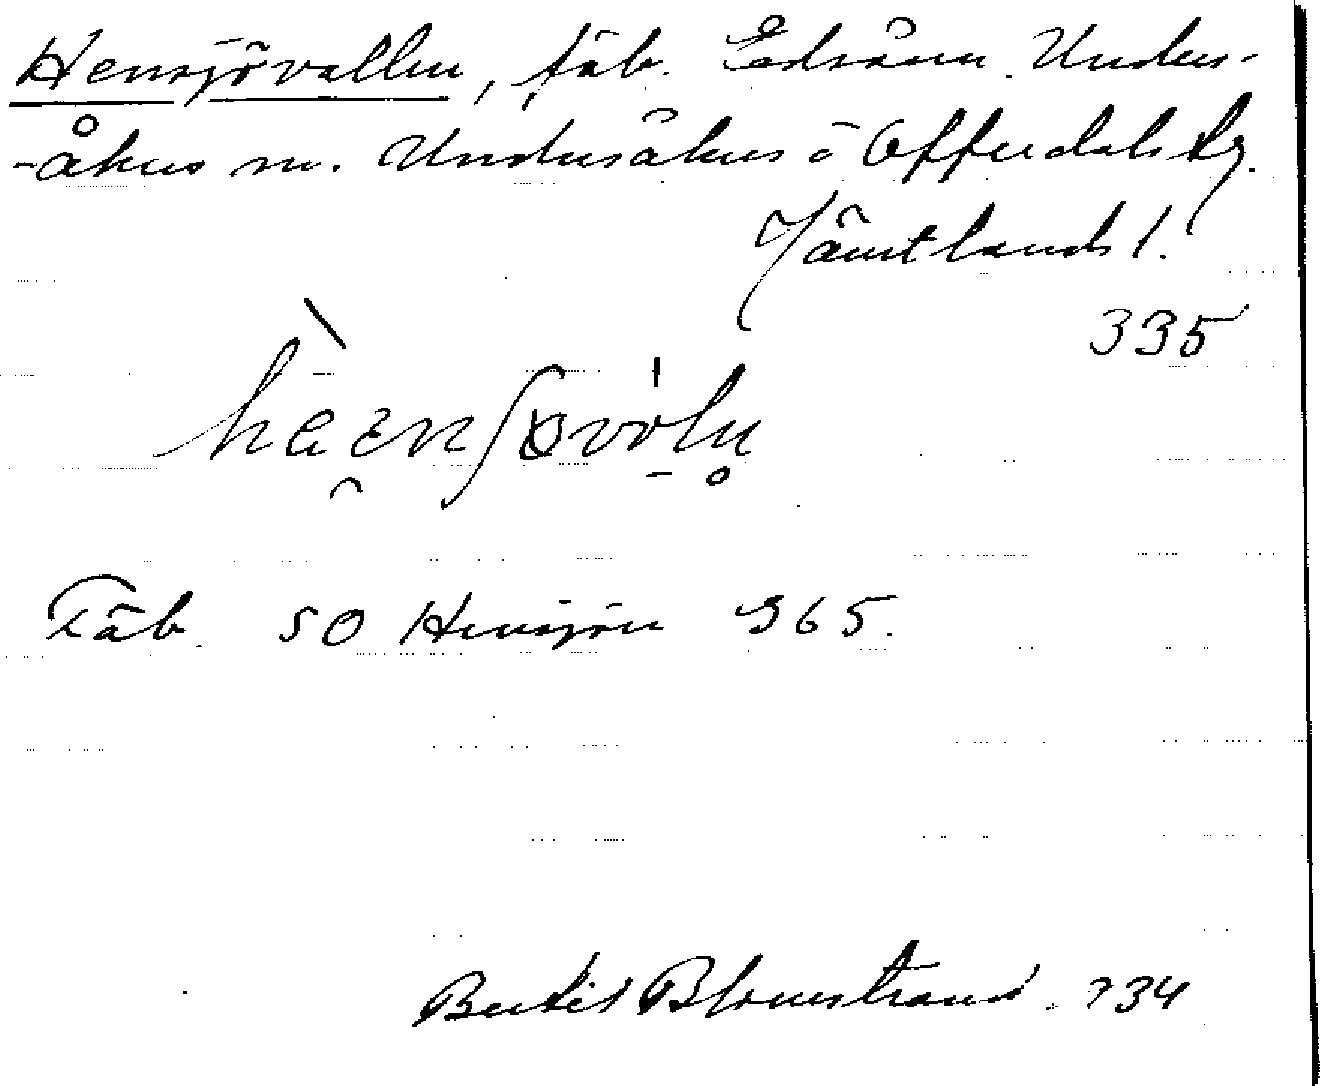 Hensjövallen, fäb. Edsåsen Unders-
-åkers sn. Undersåkers o Offerdals tg.
Jämtlands l.
335
Fäb. SO Hensjön 365.
Bertil Blomstrand. 934